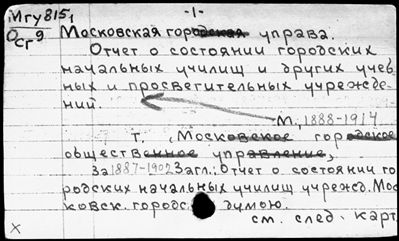 Мгу 815₁ -1-
О сг 9 Московская городская управа.
Отчет о состоянии городских
начальных училищ и других учеб
ных и просветительных учрежде-
ний.
М., 1888-1914
т. (Московское городское
общественное управление,
За 1887-1902 Загл.: Отчет о состоянии го
родских начальных училищ учрежд. Мос
ковск. городс. думою.
см. след. карт
x